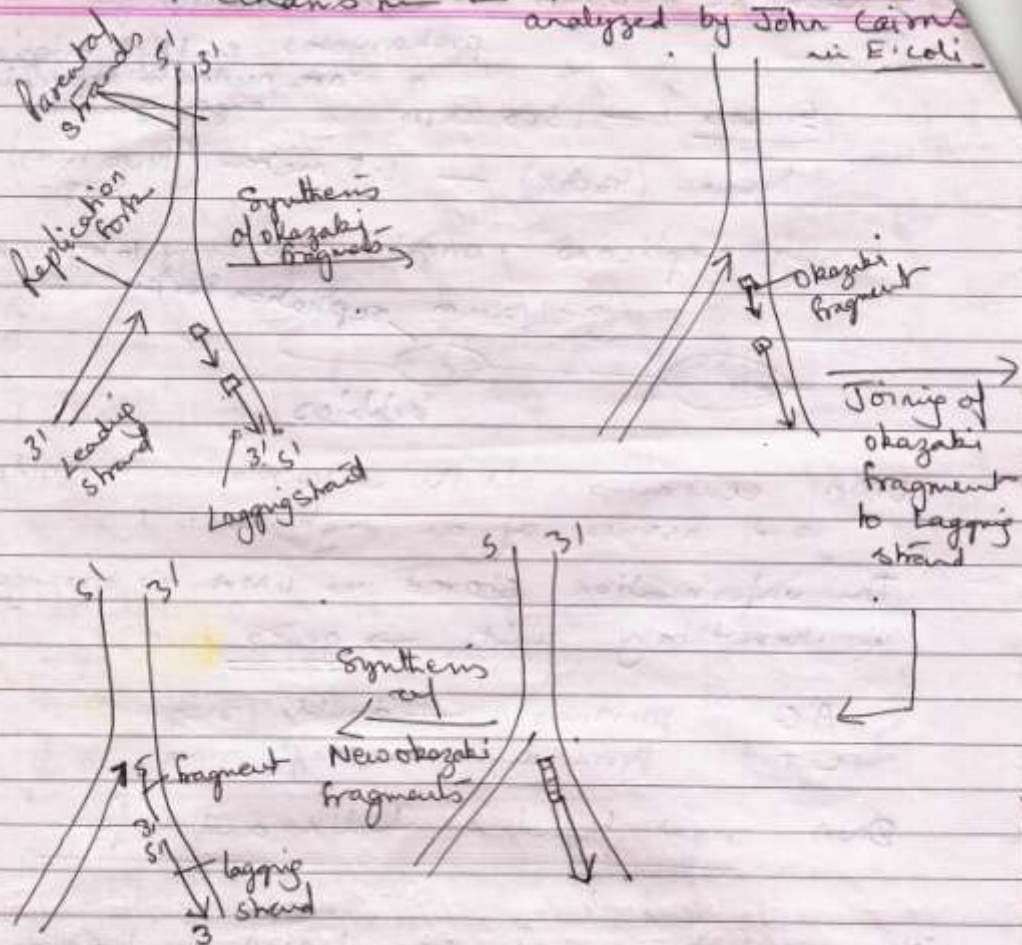 analyzed by John Cairns
in E.coli
Parental
strands
5' 3'
Replication
fork
Synthesis
of okazaki
fragments
3'
Leading
strand
3' 5'
Lagging strand
Okazaki
fragment
Joining of
okazaki
fragment
to Lagging
strand
5 3'
Synthesis
of
New okazaki
fragments
5' 3'
5
fragment
3'
5'
lagging
strand
3